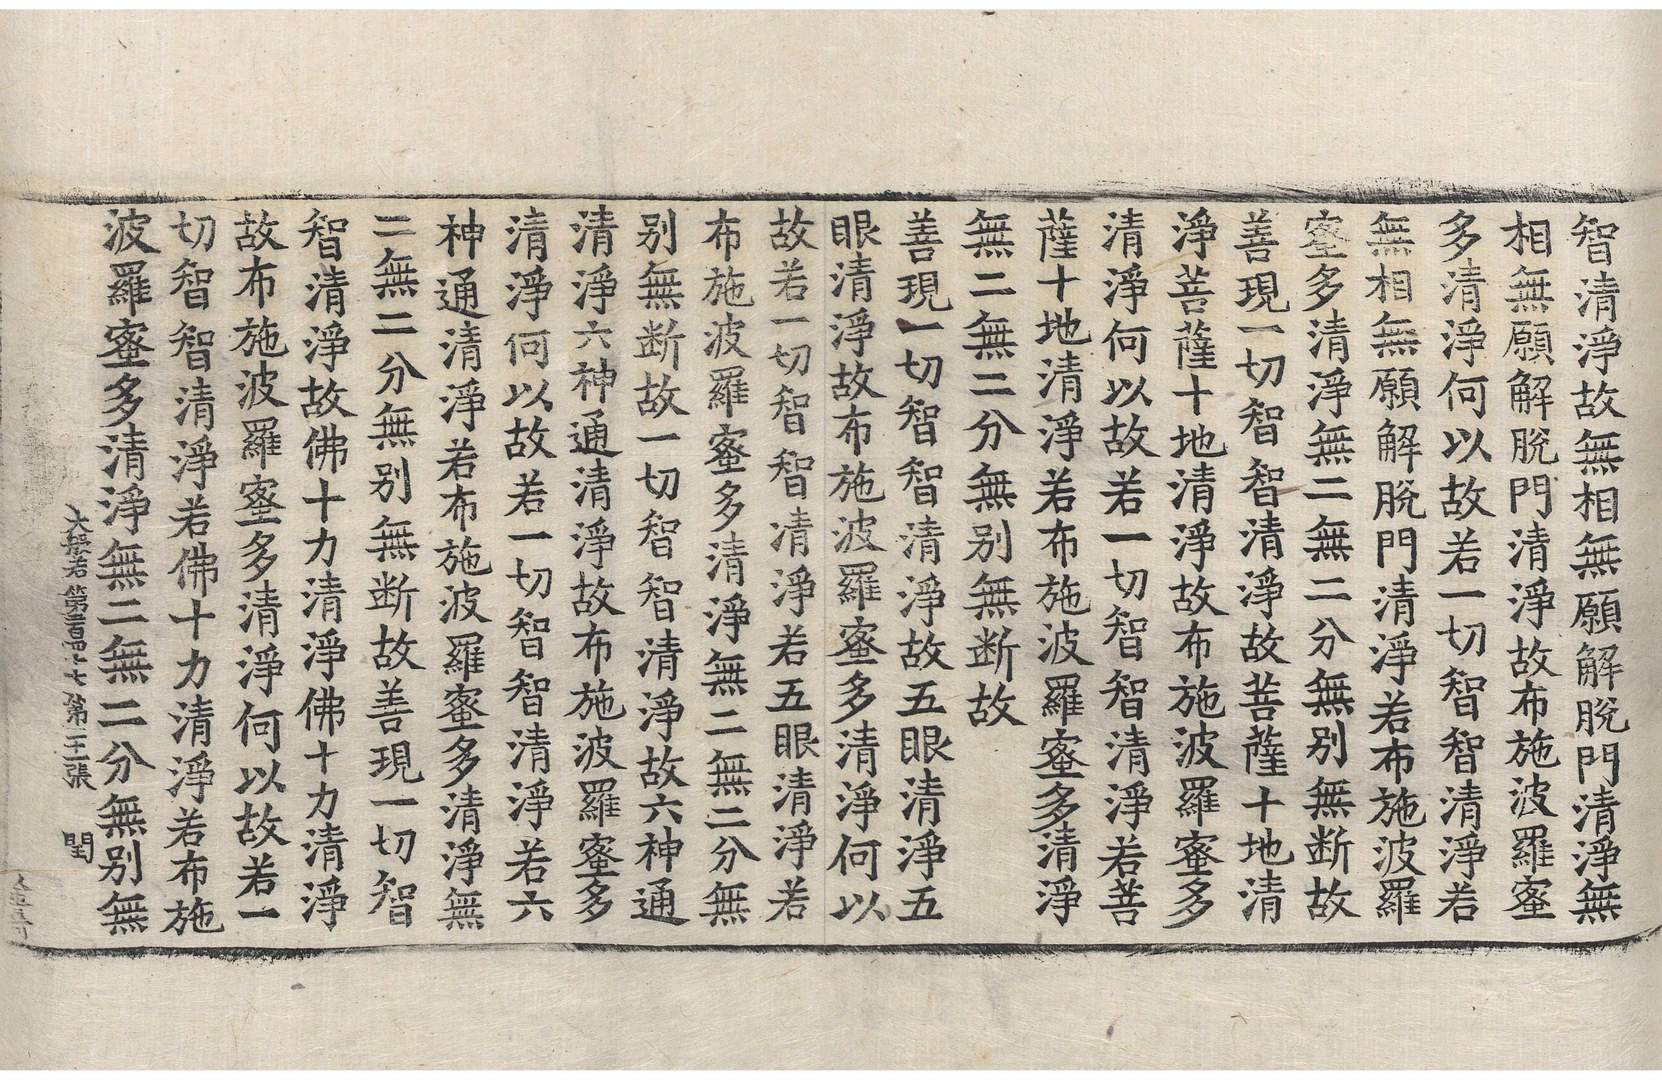 智清淨故無相無願解脫門清淨無
相無願解脫門清淨故布施波羅蜜
多清淨何以故若一切智智清淨若
無相無願解脫門清淨若布施波羅
蜜多清淨無二無二分無别無断故
善現一切智智清淨故菩薩十地清
淨菩薩十地清淨故布施波羅蜜多
清淨何以故若一切智智清淨若菩
薩十地清淨若布施波羅蜜多清淨
無二無二分無别無断故
善現一切智智清淨故五眼清淨五
眼清淨故布施波羅蜜多清淨何以
故若一切智智清淨若五眼清淨若
布施波羅蜜多清淨無二無二分無
别無断故一切智智清淨故六神通
清淨六神通清淨故布施波羅蜜多
清淨何以故若一切智智清淨若六
神通清淨若布施波羅蜜多清淨無
二無二分無别無断故善現一切智
智清淨故佛十力清淨佛十力清淨
故布施波羅蜜多清淨何以故若一
切智智清淨若佛十力清淨若布施
波羅蜜多清淨無二無二分無别無
大般若第二百四十七 第 張 閏